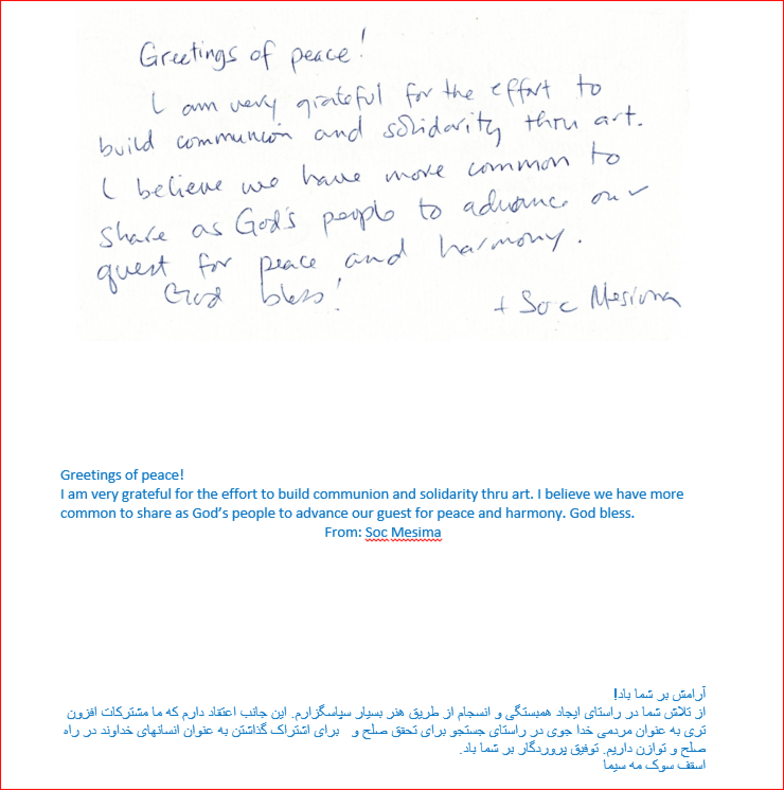 Greetings of peace!
I am very grateful for the effort to
build communion and solidarity thru art.
I believe we have more common to
share as God's people to advance our
quest for peace and harmony.
God bless!
+ Soc Mesima
Greetings of peace!
I am very grateful for the effort to build communion and solidarity thru art. I believe we have more
common to share as God's people to advance our guest for peace and harmony. God bless.
From: Soc Mesima
آرامش بر شما باد!
از تلاش شما در راستای ایجاد همبستگی و انسجام از طریق هنر بسیار سپاسگزارم. این جانب اعتقاد دارم که ما مشترکات افزون
تری به عنوان مردمی خدا جوی در راستای جستجو برای تحقق صلح و برای اشتراک گذاشتن به عنوان انسانهای خداوند در راه
صلح و توازن داریم. توفیق پروردگار بر شما باد.
اسقف سوک مه سیما